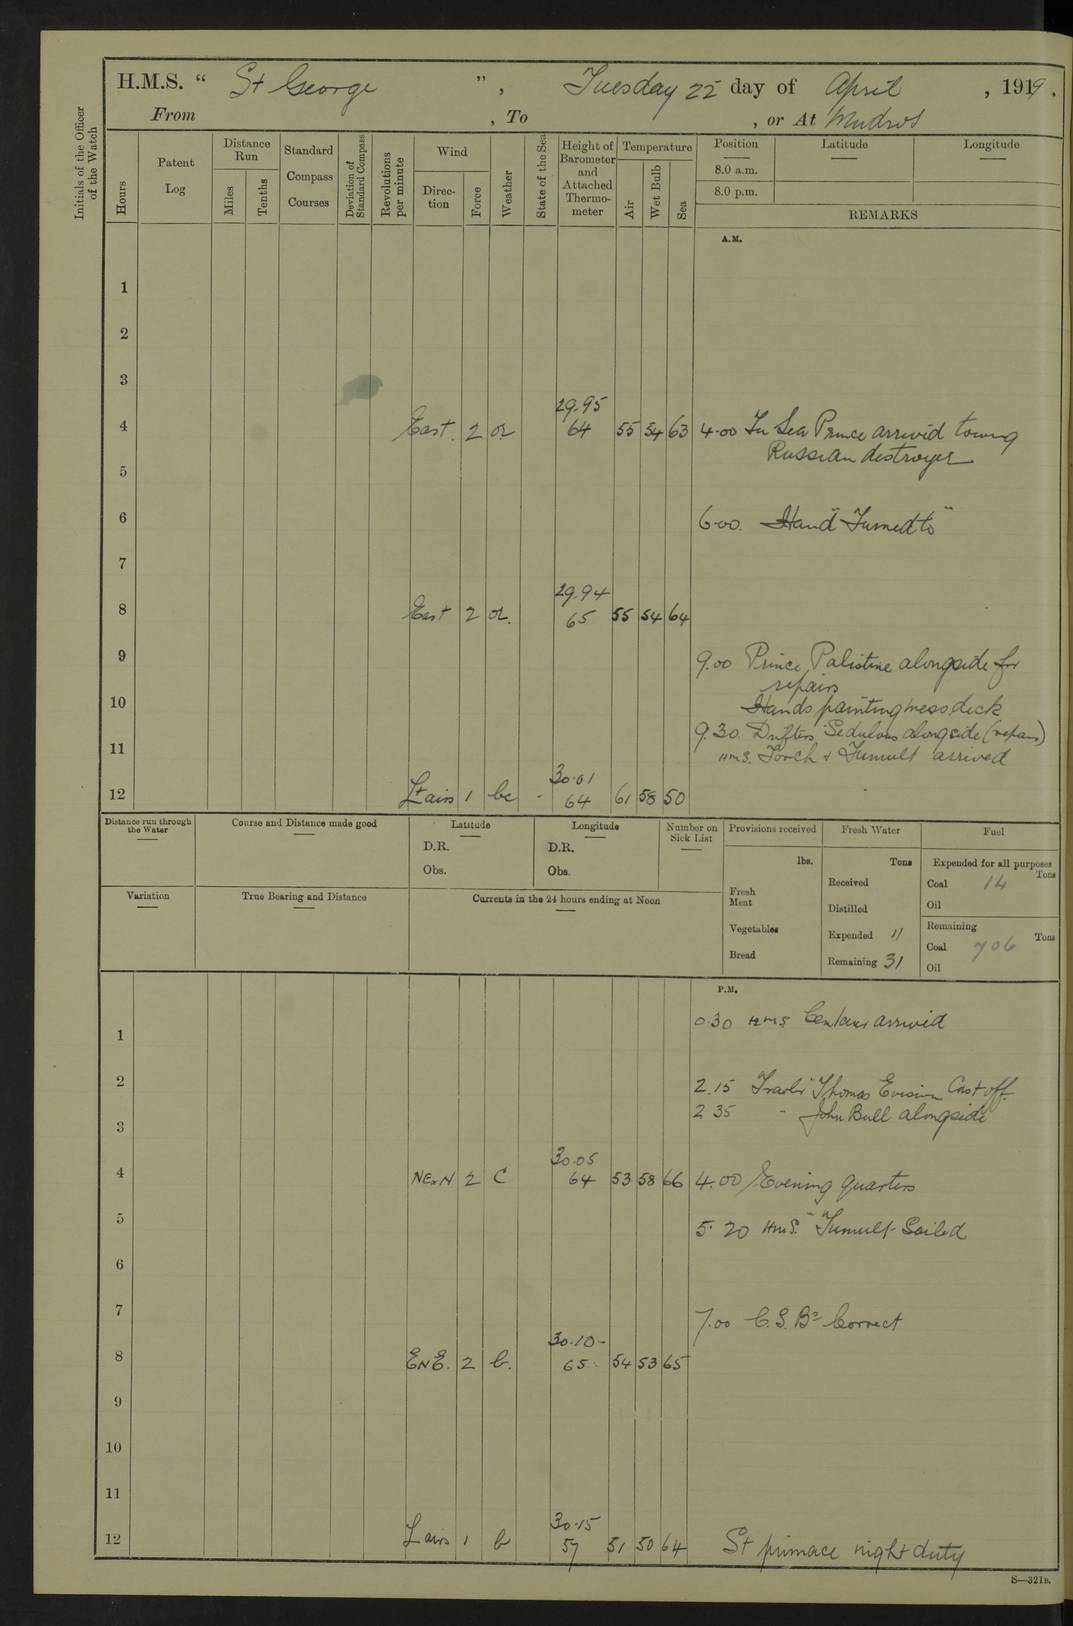 H.M.S. “ St George ”, Tuesday 22 day of April , 1919.
From , To , or At Mudros
Initials of the Officer of the Watch
Hours
Patent Log
Distance Run
Miles
Tenths
Standard Compass Courses
Deviation of Standard Compass
Revolutions per minute
Wind
Direction
Force
Weather
State of the Sea
Height of Barometer and Attached Thermometer
Temperature
Air
Wet Bulb
Sea
Position Latitude Longitude
8.0 a.m.
8.0 p.m.
REMARKS
A.M.
1
2
3
29.95
4 East 2 or 64 55 54 63 4.00 Sea Prince arrived towing
Russian destroyer
5
6 6.00. Hand "Turned to"
7
29.94
8 East 2 or. 65 55 54 64
9 9.00 Prince Palistine alongside for
repairs
10 Hands painting mess deck
9.30. Drifters Sedulous alongside (repairs)
11 HMS. Torch & Tumult arrived
30.01
12 Lt airs 1 bc - 64 61 58 50
Distance run through the Water
Course and Distance made good
Latitude
D.R.
Obs.
Longitude
D.R.
Obs.
Number on Sick List
Provisions received
lbs.
Fresh Meat
Vegetables
Bread
Fresh Water
Tons
Received
Distilled
Expended 11
Remaining 31
Fuel
Expended for all purposes
Tons
Coal 14
Oil
Remaining
Tons
Coal 706
Oil
Variation
True Bearing and Distance
Currents in the 24 hours ending at Noon
P.M.
0.30 HMS Centaur arrived
1
2 2.15 Thomas Evison Cast off.
2 35 - John Bull alongside
3
30.05
4 NExN 2 C 64 53 58 66 4.00 Evening quarters
5 5.20 HMS. "Tumult" Sailed
6
7 7.00 C.S.Bs Correct
30.10
8 ENE. 2 b. 65 54 53 65
9
10
11
30.15
12 L airs 1 b 57 51 50 64 St pinnace night duty
S—321B.